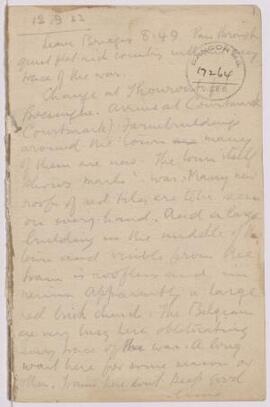 12.9.22
Leave Bruges 8.49 Pass through
quiet flat rich country without any
trace of the war.
BANGOR
17264
Change at Thourout
Arrive at Courtemarck
(Cortemark) Farmbuildings
around the town many
of them are new. The town itself
shows marks of war. Many new
roofs of red tiles are to be seen
on every hand. And a large
building in the middle of the
town and visible from the
train is roofless and in
ruins apparently a large
red brick church. The Belgians
are very busy here obliterating
every trace of the war. A long
wait here for some reason or
other. Trains here don't keep good
time